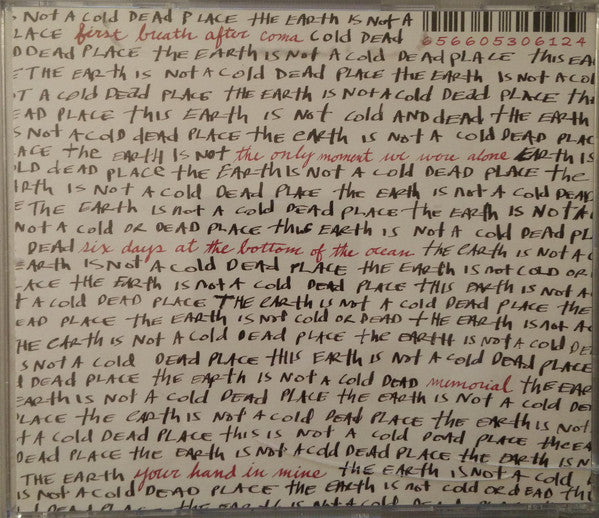 NOT A COLD DEAD PLACE THE EARTH IS NOT A
LACE first breath after coma COLD DEAD
656605306124
D DEAD PLACE THE EARTH IS NOT A COLD DEAD PLACE THIS EA
THE EARTH IS NOT A COLD DEAD PLACE THE EARTH IS NOT A COL
T A COLD DEAD PLACE THE EARTH IS NOT A COLD DEAD PLACE THE
EAD PLACE THIS EARTH IS NOT COLD AND DEAD THE EARTH
S NOT A COLD DEAD PLACE THE EARTH IS NOT A COLD DEAD PLAC
ACE THE EARTH IS NOT the only moment we were alone EARTH IS
LD DEAD PLACE THE EARTH IS NOT A COLD DEAD PLACE THE
IRTH IS NOT A COLD DEAD PLACE THE EARTH IS NOT A COLD DEAD
E THE EARTH IS NOT A COLD DEAD PLACE THE EARTH IS NOT A
NOT A COLD OR DEAD PLACE THIS EARTH IS NOT A COLD DEAD PL
DEAD six days at the bottom of the ocean THE EARTH IS NOT A C
EARTH IS NOT A COLD DEAD PLACE THE EARTH IS NOT COLD OR
LACE THE EARTH IS NOT A COLD DEAD PLACE THIS EARTH IS NOT A
T A COLD DEAD PLACE THE EARTH IS NOT A COLD DEAD PLACE THE
EAD PLACE THE EARTH IS NOT COLD OR DEAD THE EARTH IS NOT A
HE EARTH IS NOT A COLD DEAD PLACE THE EARTH IS NOT A COLD DE
S NOT A COLD DEAD PLACE THIS EARTH IS NOT A COLD DEAD PLACE
DEAD PLACE THE EARTH IS NOT A COLD DEAD memorial THE EAR
EARTH IS NOT A COLD DEAD PLACE THE EARTH IS NOT A COLD DE
LACE THE EARTH IS NOT A COLD DEAD PLACE THE EARTH IS NOT
T A COLD DEAD PLACE THIS IS NOT A COLD DEAD PLACE THE EA
DEAD PLACE THE EARTH IS NOT A COLD DEAD PLACE THE EARTH IS N
THE EARTH your hand in mine THE EARTH IS NOT A COLD
IS NOT A COLD DEAD PLACE THE EARTH IS NOT COLD OR DEAD THI
THE EARTH IS NOT A COLD DEAD PLACE